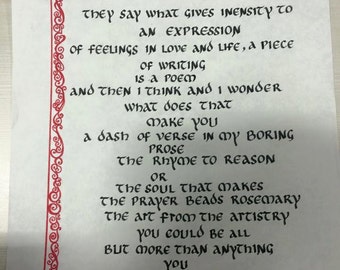 They say what gives inensity to
an expression
of feelings in love and life, a piece
of writing
is a poem
and then I think and I wonder
what does that
make you
a dash of verse in my boring
prose
the rhyme to reason
or
the soul that makes
the prayer beads rosemary
the art from the artistry
you could be all
but more than anything
you